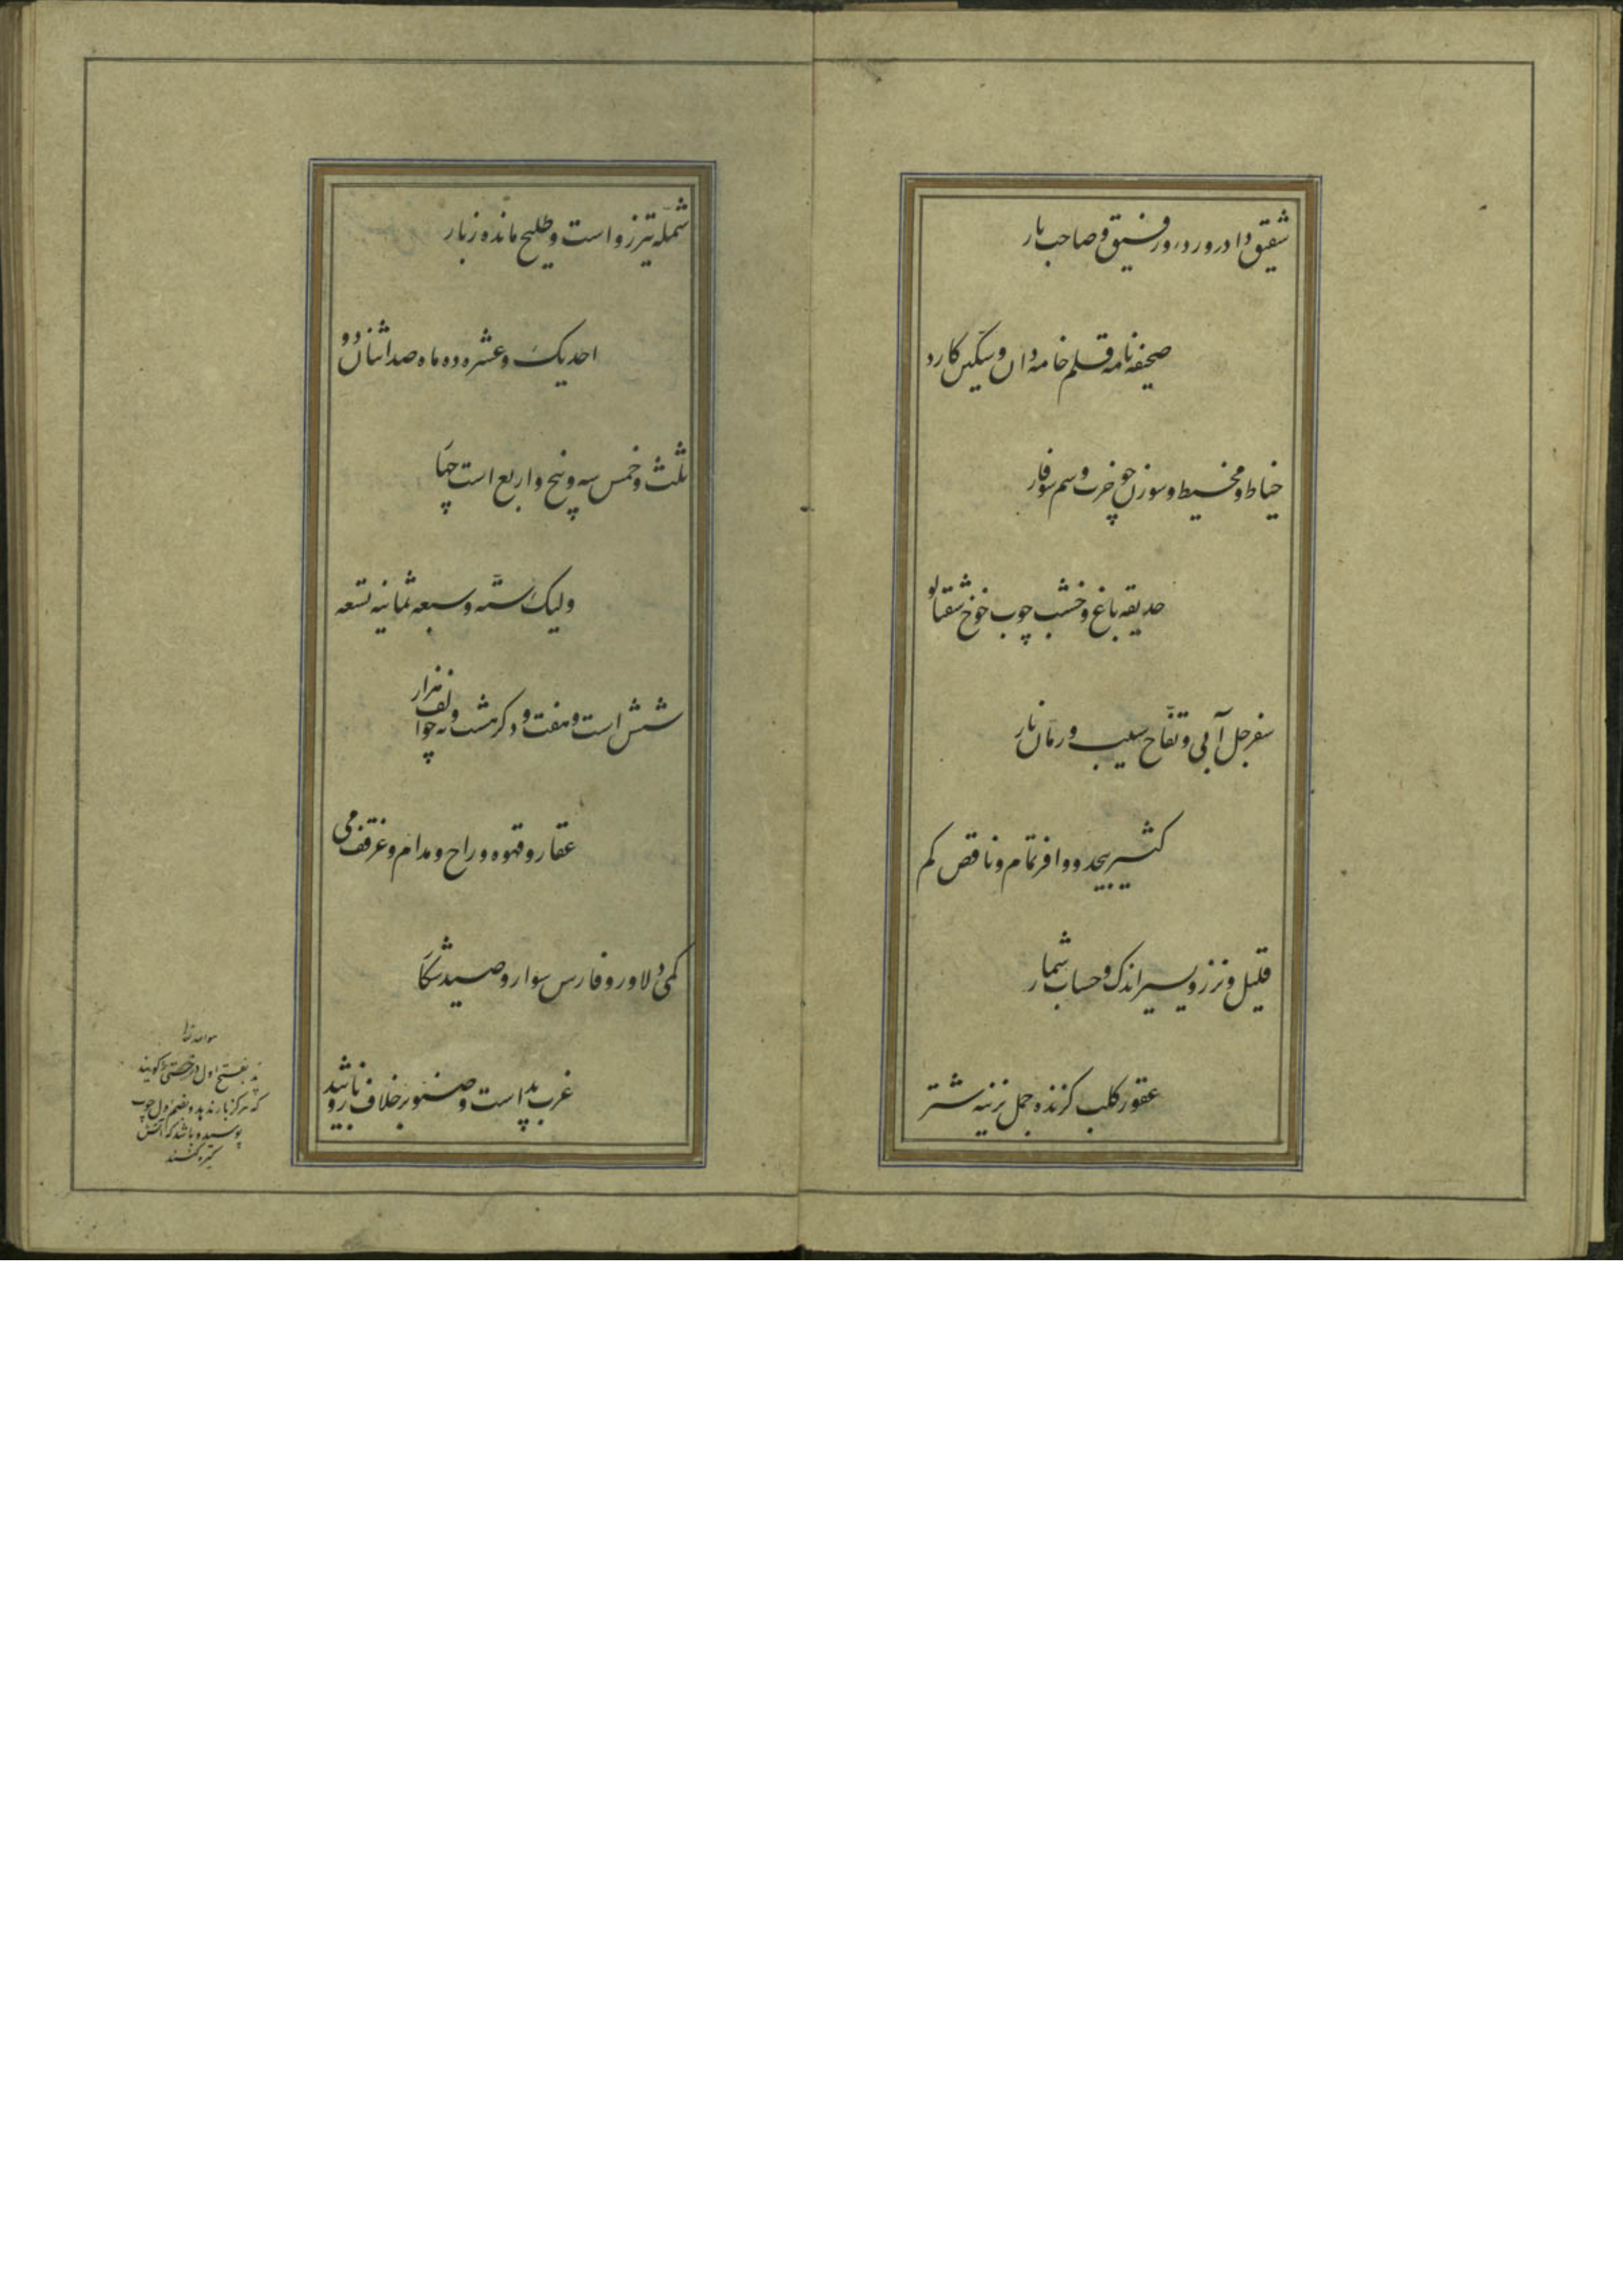 شقیق دادر و ردرور رفیق و صاحب یار
صحیفه نامه قلم خامه دان و سکین کارد
خیاط و مخیط و سوزن چو خرت و سم سوفار
حدیقه باغ و خشب چوب خوخ شفتالو
سفرجل آبی و تفاح سیب و رمان نار
کثیر بیحد و وافر تمام و ناقص کم
قلیل و نزر و یسیر اندک و حساب شمار
عقور کلب کزنده جمل نرینه شتر
شمله تیزرو است و طلیح مانده ز بار
احد یک و عشره ده مأه صد اثنان دو
ثلث و خمس سه و پنج و اربع است چهار
ولیک سته و سبعه ثمانیه تسعه
شش است و هفت و دکر هشت و نه چو الف هزار
عقار و قهوه و راح و مدام و غرقف می
کمی دلاور و فارس سوار و صید شکار
غرب پد است و صنوبر خلاف باشد بید
پد بفتح اول درختی را کویند
که هرکز بار ندهد و بضم اول چوب
پوسیده باشد که آتش
کیره کنند